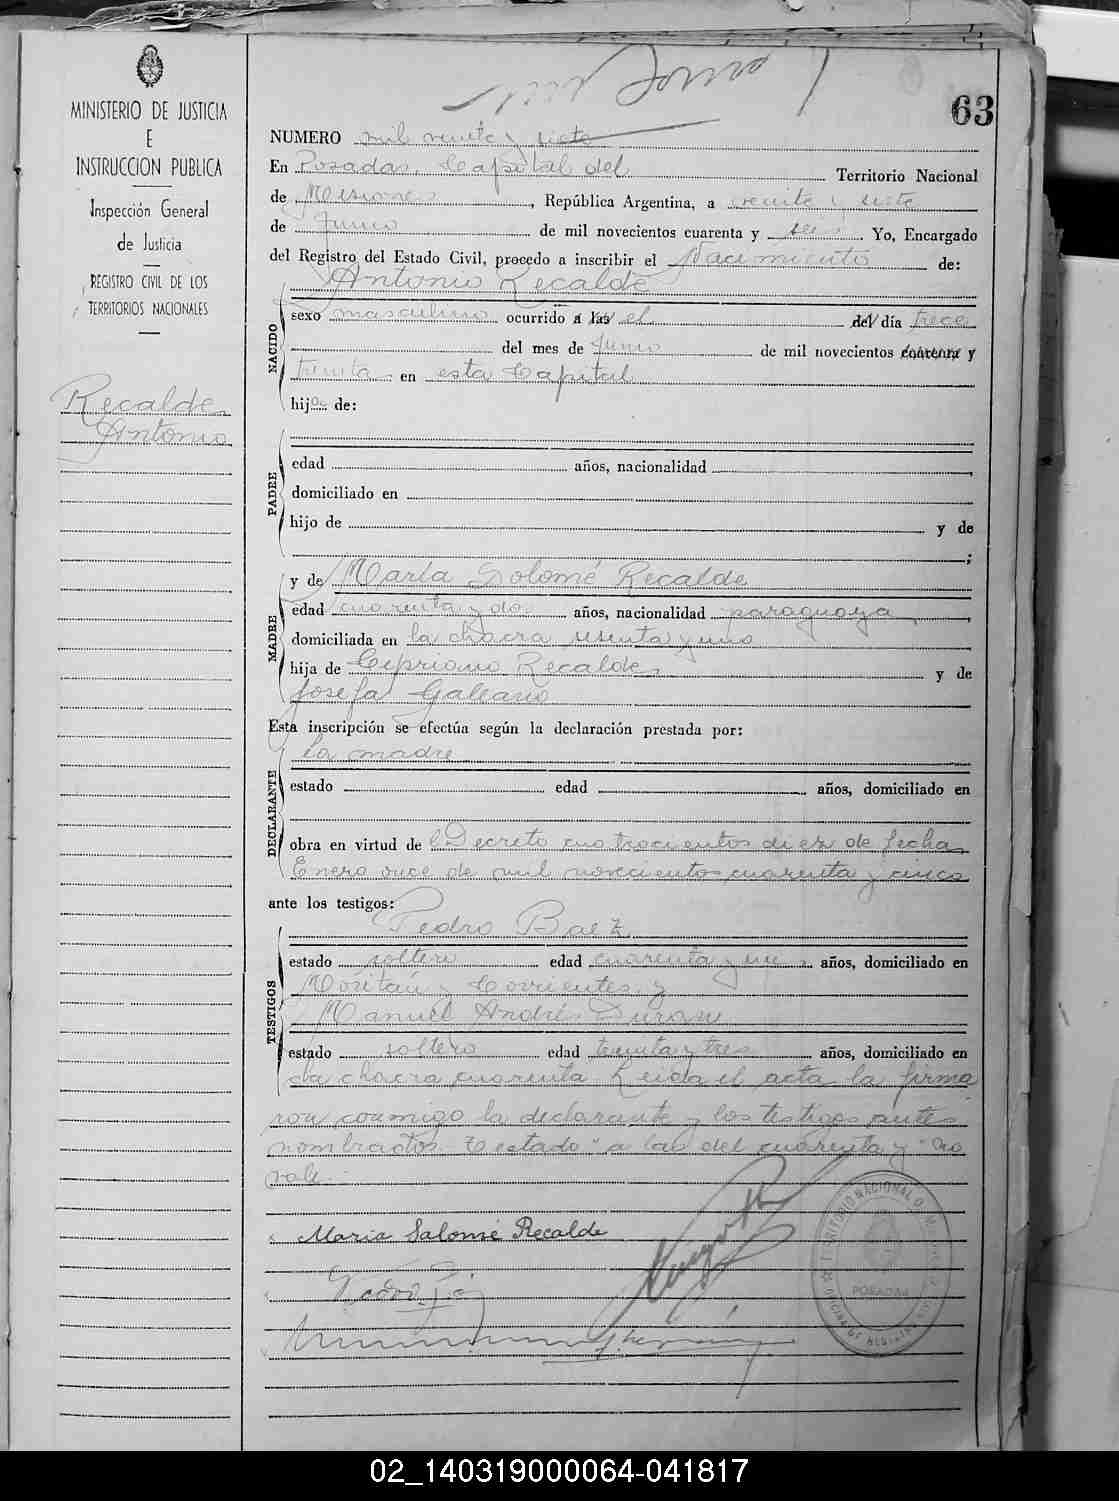 63
MINISTERIO DE JUSTICIA
E
INSTRUCCION PUBLICA
Inspección General
de Justicia
REGISTRO CIVIL DE LOS
TERRITORIOS NACIONALES
Recalde
Antonio
NUMERO mil veinte y siete
En Posadas, Capital del Territorio Nacional
de Misiones, República Argentina, a veinte y siete
de Junio de mil novecientos cuarenta y seis Yo, Encargado
del Registro del Estado Civil, procedo a inscribir el Nacimiento de:
Antonio Recalde
NACIDO
sexo masculino ocurrido a las el del día trece
del mes de Junio de mil novecientos cuarenta y
treinta en esta Capital
hijo de:
PADRE
edad años, nacionalidad
domiciliado en
hijo de y de
;
MADRE
y de María Solomé Recalde
edad cuarenta y dos años, nacionalidad paraguaya,
domiciliada en la chacra sesenta y uno
hija de Cipriano Recalde y de
Josefa Galeano
Esta inscripción se efectúa según la declaración prestada por:
DECLARANTE
la madre
estado edad años, domiciliado en
obra en virtud de Decreto cuatrocientos diez de fecha
Enero once de mil novecientos cuarenta y cinco
ante los testigos:
TESTIGOS
Pedro Baez
estado soltero edad cuarenta y años, domiciliado en
y Corrientes y
Manuel Andrés
estado soltero edad treinta y tres años, domiciliado en
la chacra cuarenta. Leida el acta la firma
ron conmigo la declarante y los testigos antes
nombrados. Testado "a las del cuarenta y" No
vale.
Maria Salomé Recalde
TERRITORIO NACIONAL D. M.
POSADAS
02_140319000064-041817